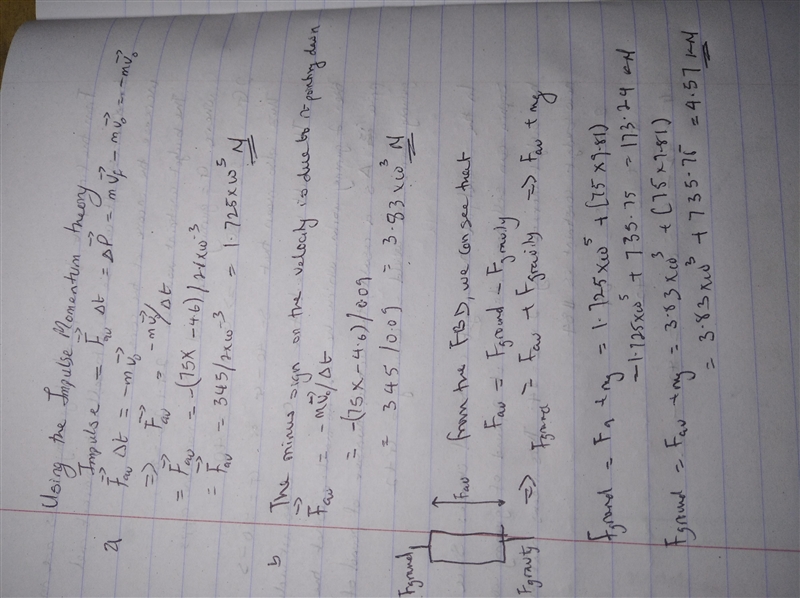 Using the Impulse Momentum theory
a) Impulse = F⃗av Δt = ΔP⃗ = mv⃗f - mv⃗o = -mv⃗o
F⃗av Δt = -mv⃗o
=> F⃗av = -mv⃗o/Δt
= F⃗av = -(75x -4.6)/2x10⁻³
= F⃗av = 345/2x10⁻³ = 1.725x10⁵ N
b The minus sign on the velocity is due to it pointing down
F⃗av = -mv⃗o/Δt
= -(75x-4.6)/0.09
= 345/0.09 = 3.83x10³ N
Fground
Fav
Fgravity
from the FBD, we can see that
Fav = Fground - Fgravity
=> Fground = Fav + Fgravity => Fav + mg
Fground = Fa + mg = 1.725x10⁵ + (75x9.81)
= 1.725x10⁵ + 735.75 = 173.24 kN
Fground = Fav + mg = 3.83x10³ + (75x9.81)
= 3.83x10³ + 735.75 = 4.57 kN